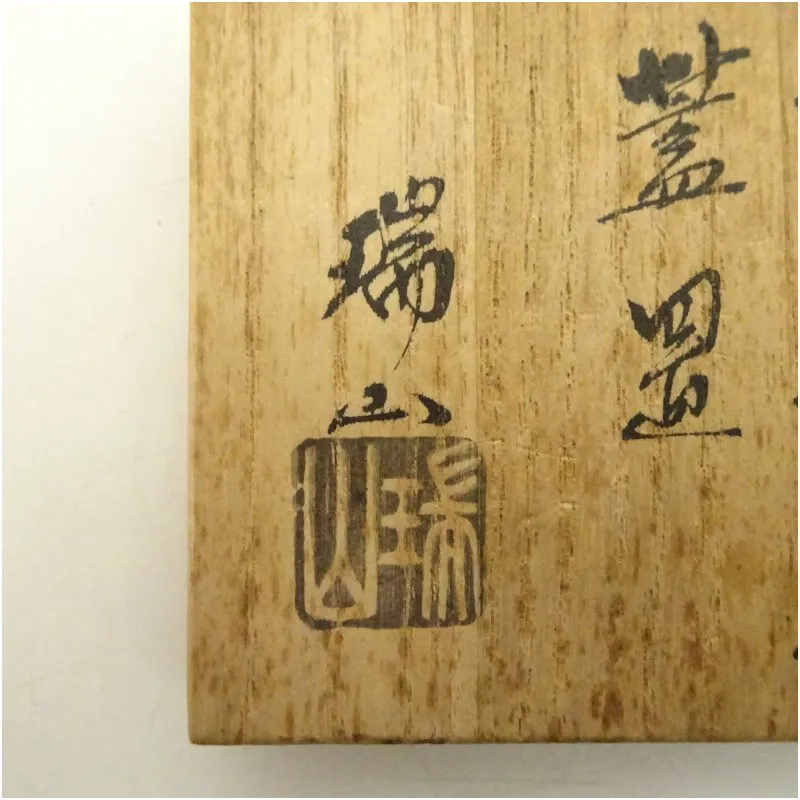 蓋置
瑞山
瑞山